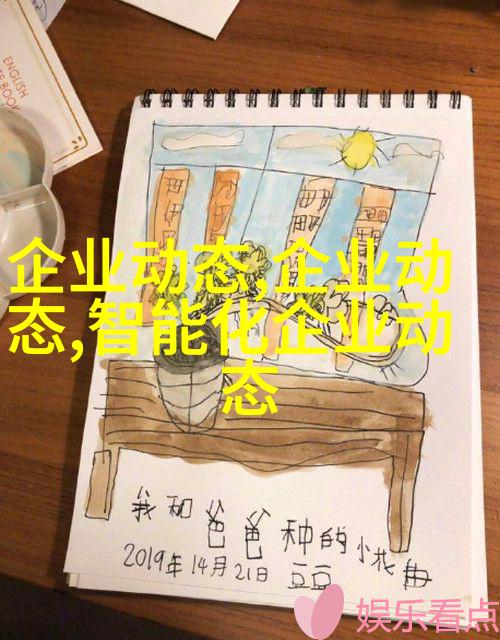 ENGLISH
企业动态,企业动
态,智能化企业动
态
我和爸爸种的小花母
2019年14月21日 豆豆
娱乐看点